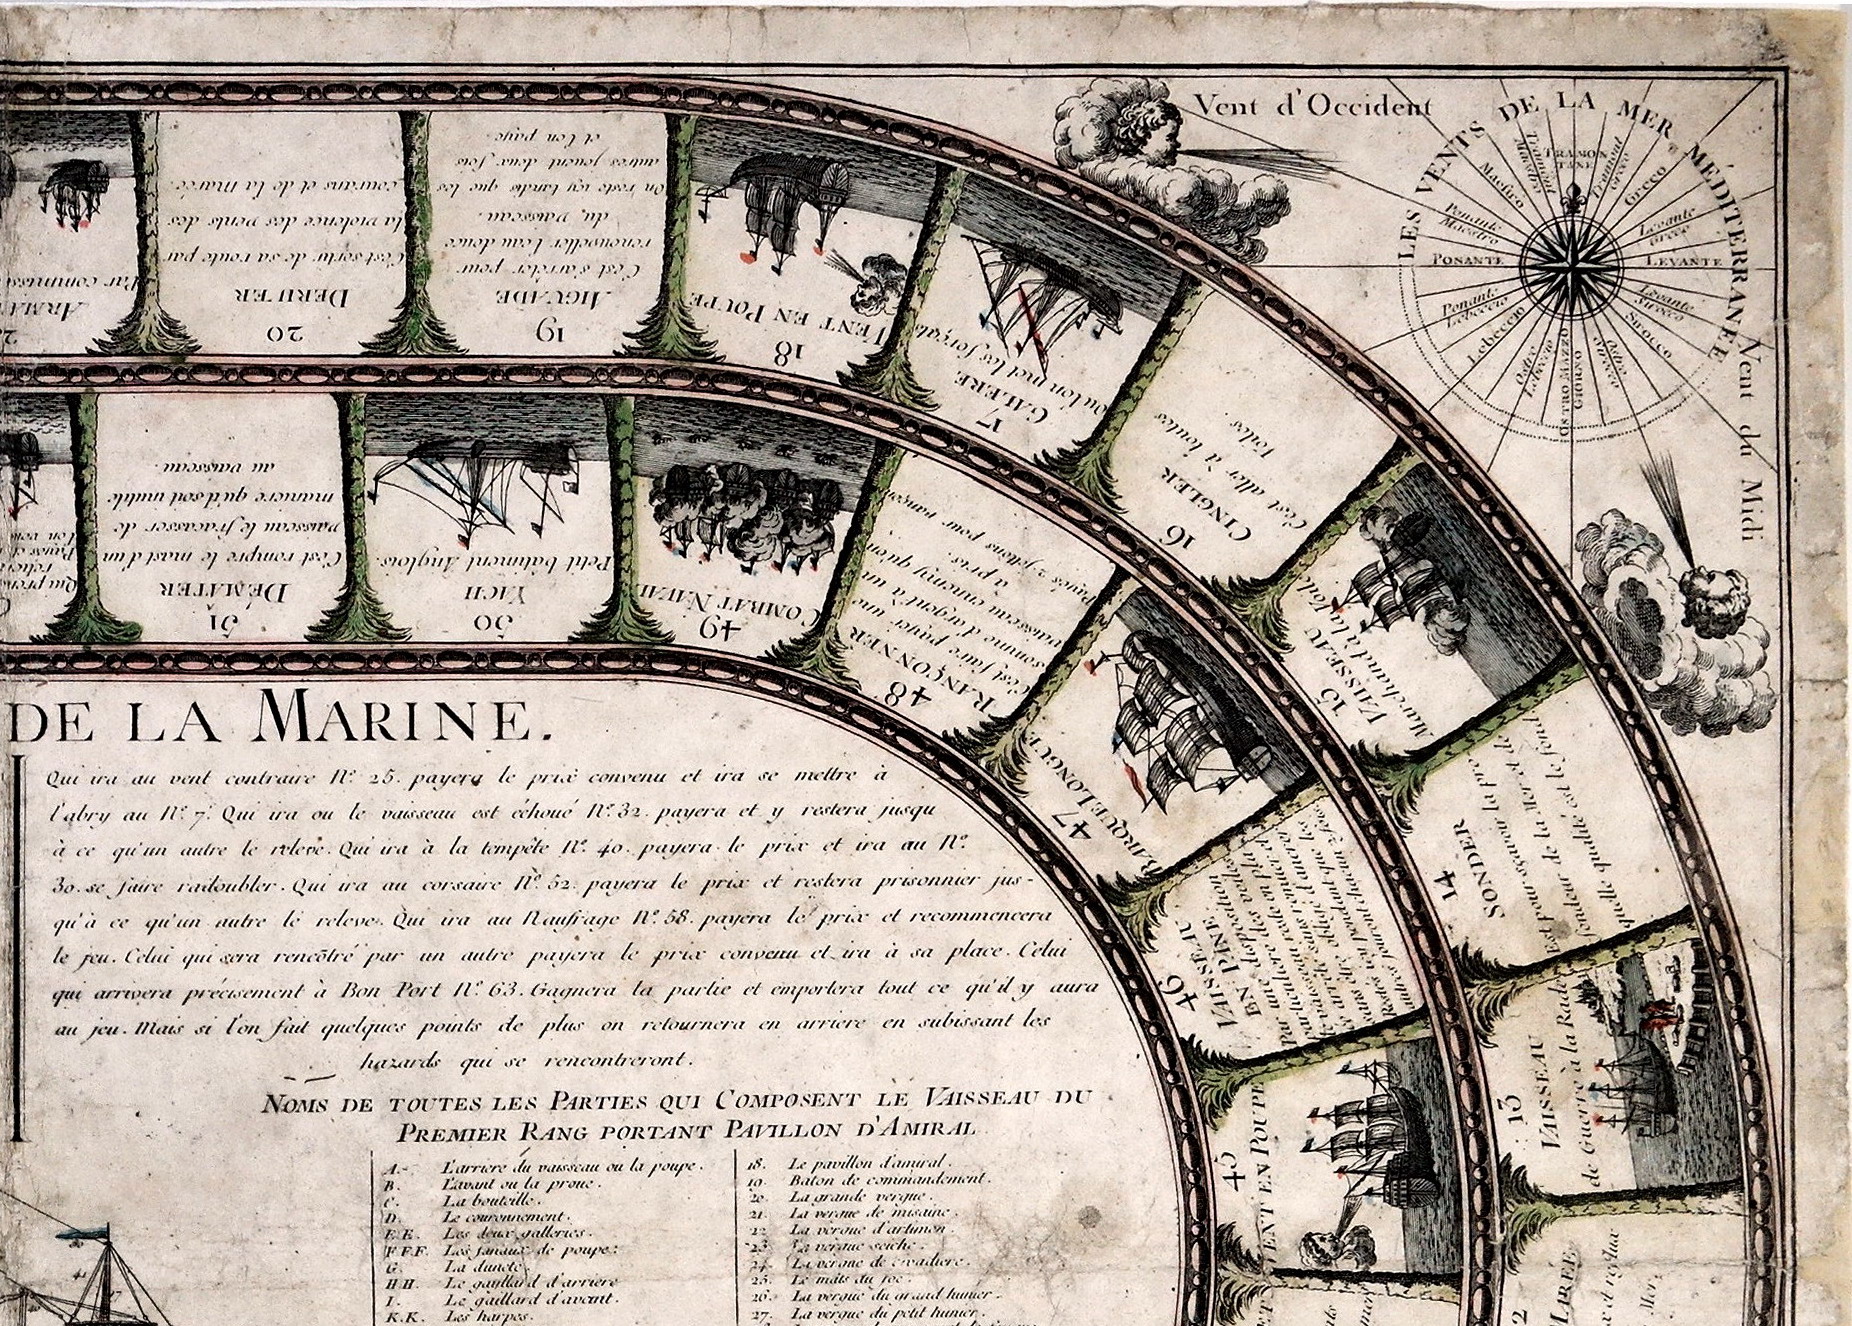 Vent d'Occident
LES VENTS DE LA MER MÉDITERRANÉE
TRAMONTANE
Greco
Levante Greco
LEVANTE
Levante Siroco
Siroco
OSTRO MAZZO GIORNO
Ostro Lebeccio
Lebeccio
Ponante Lebeccio
PONANTE
Ponante Maestro
Maestro
Vent du Midi
20
DERIVER
C'est sortir de sa route par
la violence des vents des
courans et de la marée.
19
AIGUADE
C'est s'arrêter pour
renouveller l'eau douce
du vaisseau.
On reste icy tandis que les
autres jouent deux fois
et l'on paye
18
VENT EN POUPE
17
GALERE,
ou l'on met les forçats
16
CINGLER
C'est aller à toutes
Voiles.
15
VAISSEAU
Marchand à la Voile
14
SONDER
Est pour sçavoir la pro
fondeur de la Mer et de
quelle qualité est le fond
13
VAISSEAU
de Guerre à la Rade
51
DÉMATER
C'est rompre le mast d'un
vaisseau le fracasser de
maniere qu'il soit inutile
au vaisseau.
50
YACH
Petit bâtiment Anglois.
49
COMBAT NAVAL
48
RANÇONNER
C'est faire payer une
somme d'argent à un
vaisseau ennemy qu'on
a pris.
Payés 2 jettons pour rançon
47
BARQUE LONGUE
46
VAISSEAU
EN PANE.
45
VENT EN POUPE
DE LA MARINE.
Qui ira au vent contraire N.º 25. payera le prix convenu et ira se mettre à
l'abry au N.º 7. Qui ira ou le vaisseau est échoué N.º 32. payera et y restera jusqu
à ce qu'un autre le releve. Qui ira à la tempête N.º 40. payera le prix et ira au N.º
30. se faire radoubler. Qui ira au corsaire N.º 52. payera le prix et restera prisonnier jus-
qu'à ce qu'un autre le releve. Qui ira au Naufrage N.º 58. payera le prix et recommencera
le jeu. Celui qui sera rencôtré par un autre payera le prix convenu et ira à sa place. Celui
qui arrivera précisement à Bon Port N.º 63. Gagnera la partie et emportera tout ce qu'il y aura
au jeu. Mais si l'on fait quelques points de plus on retournera en arriere en subissant les
hazards qui se rencontreront.
NOMS DE TOUTES LES PARTIES QUI COMPOSENT LE VAISSEAU DU
PREMIER RANG PORTANT PAVILLON D'AMIRAL
A. L'arriere du vaisseau ou la poupe.
B. L'avant ou la proue.
C. La bouteille.
D. Le couronnement.
E.E. Les deux galleries.
F.F.F. Les fanaux de poupe.
G. La dunete.
H.H. Le gaillard d'arriere
I. Le gaillard d'avant.
K.K. Les herpes.
18. Le pavillon d'amiral.
19. Bâton de commandement.
20. La grande vergue.
21. La vergue de misaine.
22. La vergue d'artimon.
23. La vergue seiche.
24. La vergue de civadiere.
25. Le mâts du foc.
26. La vergue du grand hunier.
27. La vergue du petit hunier.